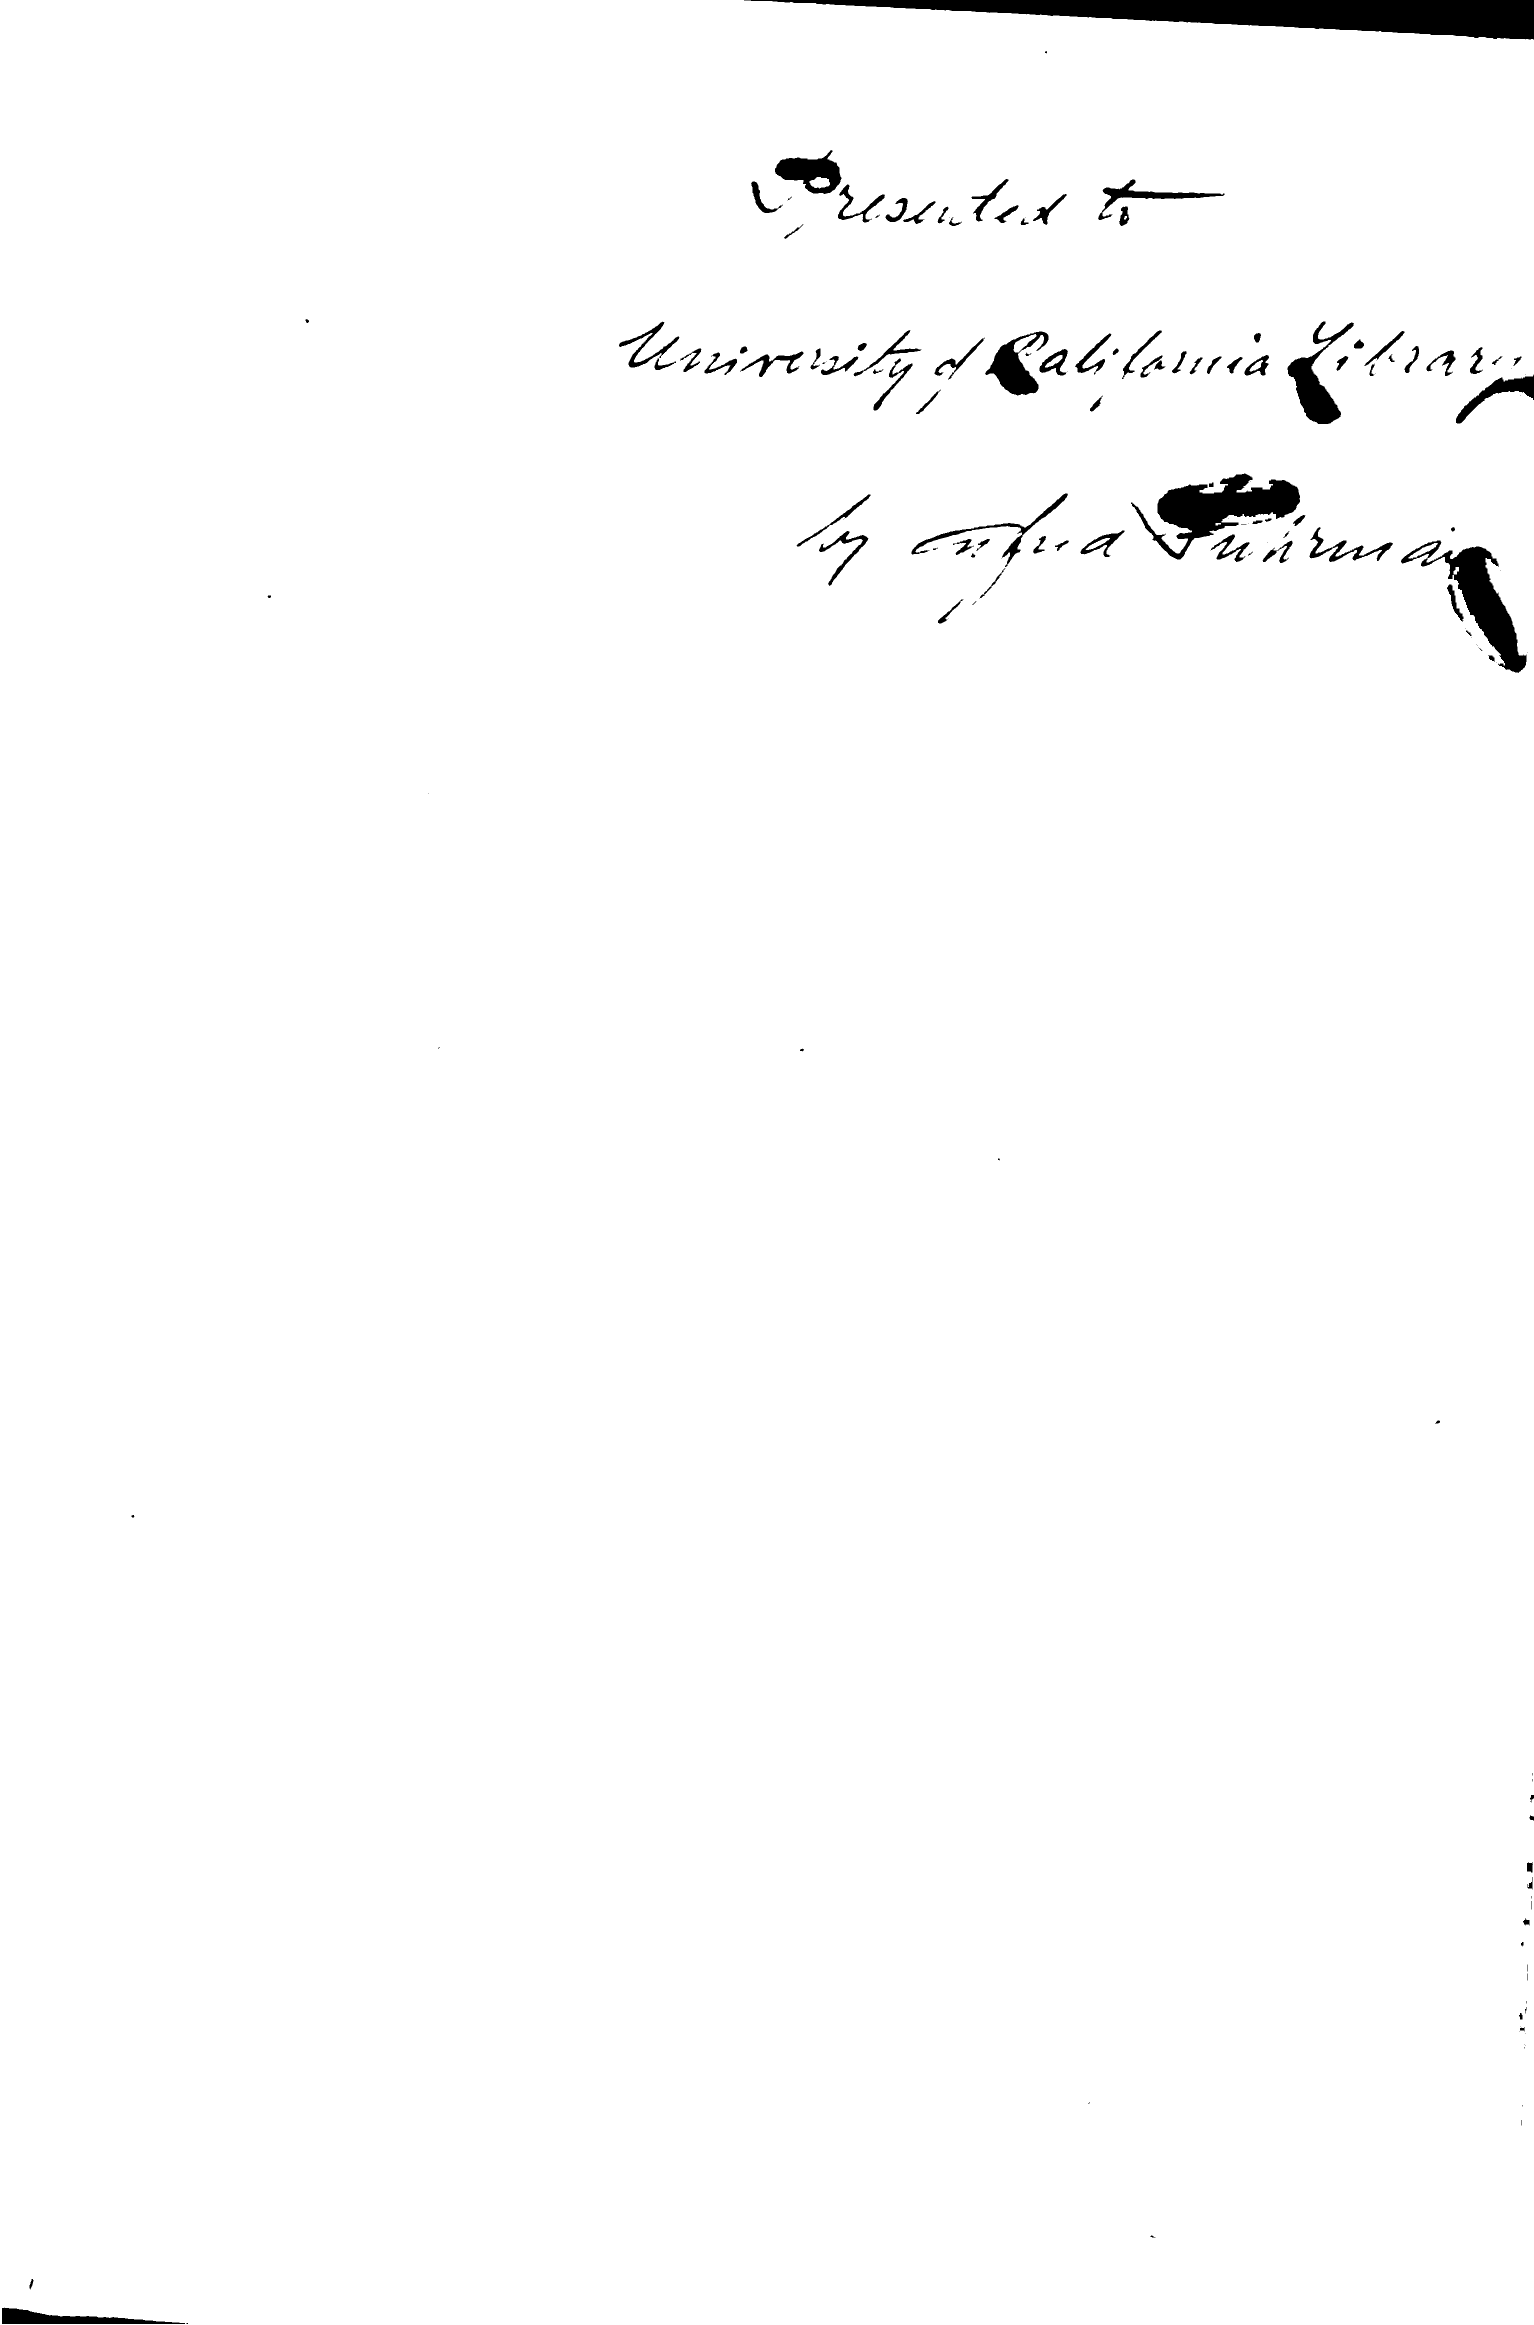 Presented to
University of California Library
by Alfred Fuhrman